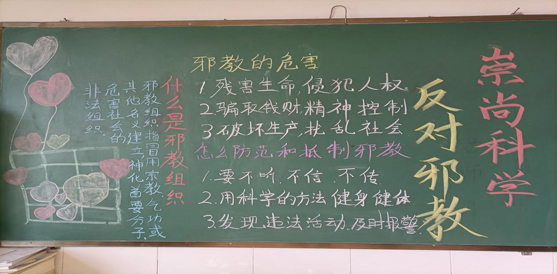 崇尚科学
反对邪教
邪教的危害
1.残害生命,侵犯人权。
2.骗取钱财精神控制
3.破坏生产,扰乱社会
怎么防范和抵制邪教
1.要不听、不信、不传。
2.用科学的方法健身健体
3.发现违法活动,及时报警
什么是邪教组织
邪教组织指冒用宗教、气功或
其他名义建立,神化首要分子,
危害社会的
非法组织。